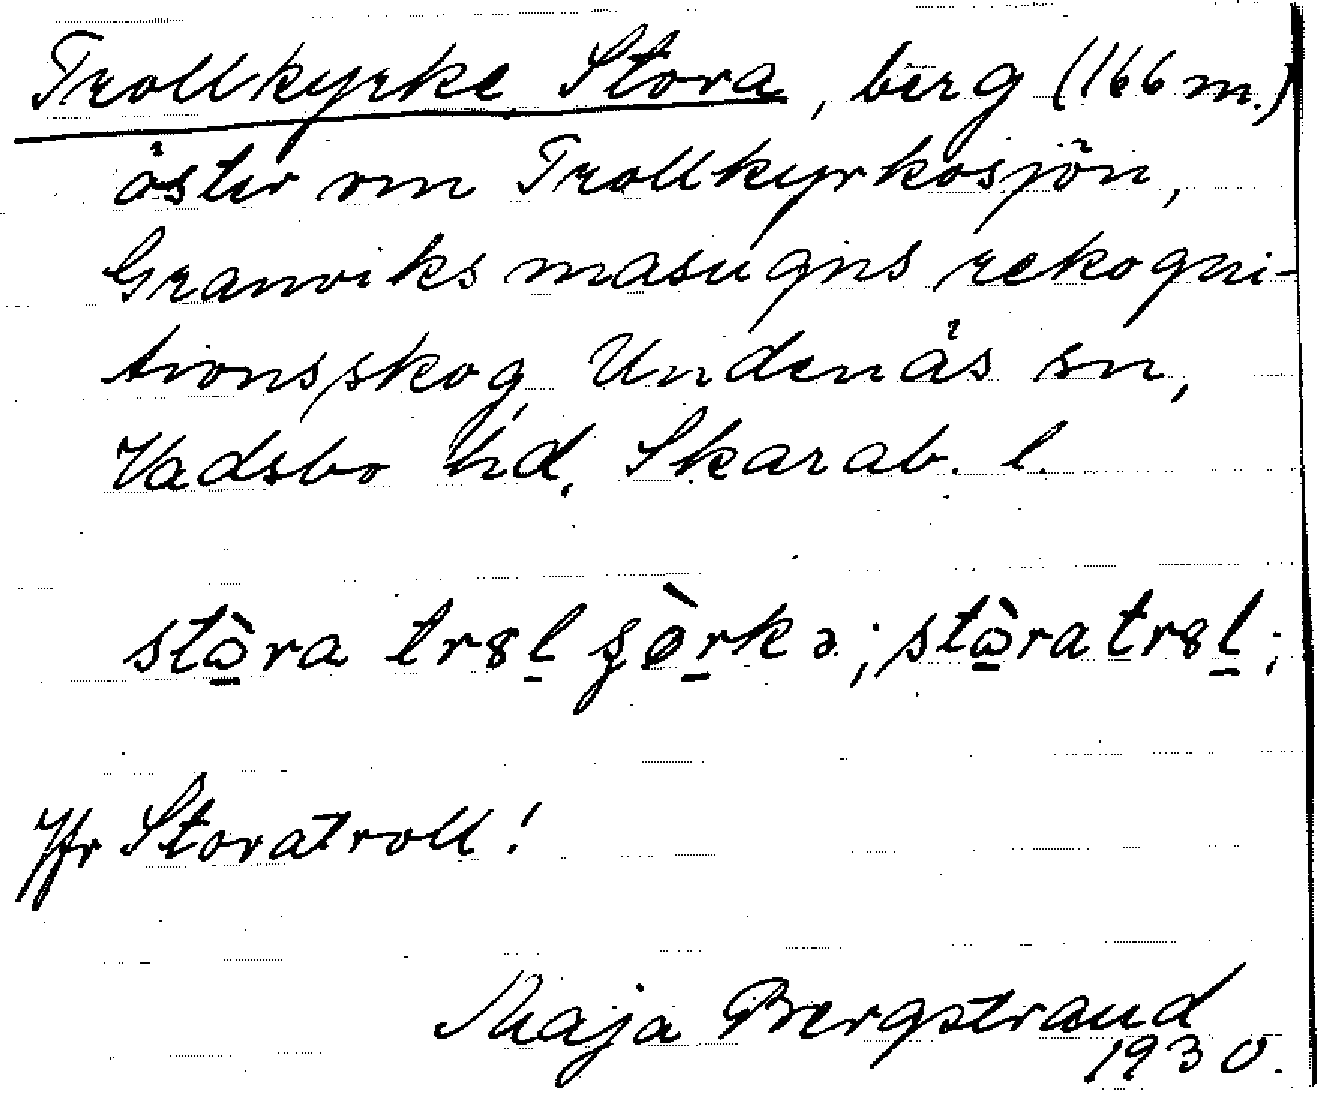 Trollkyrke Stora, berg (166 m.)
öster om Trollkyrkosjön,
Granviks masugns rekogni-
tionsskog, Undenäs sn,
Vadsbo hd, Skarab. l.
stɷ̀ra tr8l̠ ʂɵ̀r̠kə; stɷ̀ratr8l̠;
Jfr Storatroll!
Maja Bergstrand
1930.